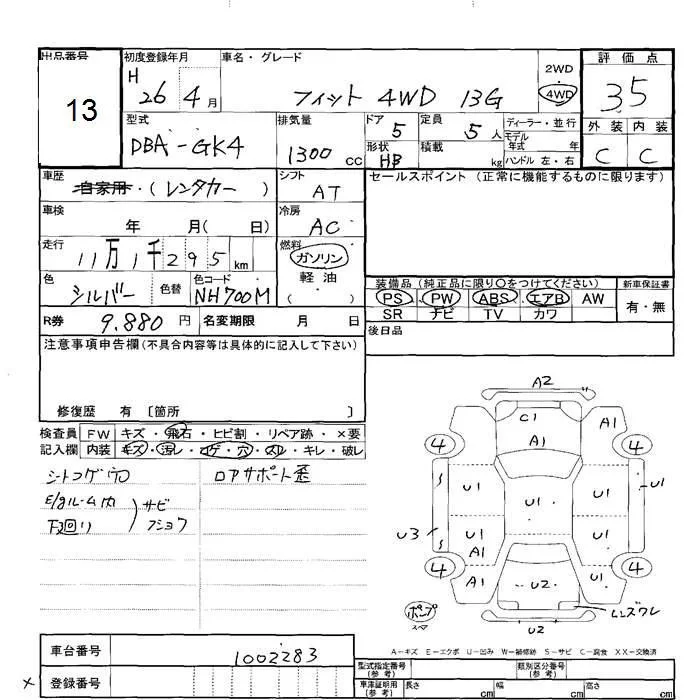 出品番号
13
初度登録年月
H 26 4月
車名・グレード
フィット 4WD 13G
2WD
4WD
評価点
3.5
外装 内装
C C
型式
DBA-GK4
排気量
1300 cc
ドア
5
定員
5人
形状
HB
積載
kg
ディーラー・並行
モデル
年式 年
ハンドル 左・右
車歴
自家用・(レンタカー)
シフト
AT
車検
年 月( 日)
冷房
AC
走行
11万1千295km
燃料
ガソリン
軽油
( )
色
シルバー
色替
色コード
NH700M
R券 9.880円
名変期限 月 日
セールスポイント(正常に機能するものに限ります)
装備品(純正品に限り○をつけてください)
PS・PW・ABS・エアB・AW
SR ナビ TV カワ
新車保証書
有・無
後日品
注意事項申告欄(不具合内容等は具体的に記入して下さい)
修復歴 有〔箇所 〕
検査員
記入欄
FW キズ・飛石・ヒビ割・リペア跡・×要
内装 キズ・汚レ・コゲ・穴・スレ・キレ・破レ
シートコゲ穴
E/gルーム内
下廻り
サビ
フショク
ロアサポート歪
A2
C1
A1
A1
4
4
U1
U1
U1
U1
U3
U1
A1
U1
4
4
A1
U2
A1
レンズワレ
ポンプ
U2
A-キズ E-エクボ U-凹み W-補修跡 S-サビ C-腐食 XX-交換済
車台番号
1002283
× 登録番号
型式指定番号
(参考)
類別区分番号
(参考)
車庫証明用
(参考)
長さ cm
幅 cm
高さ cm